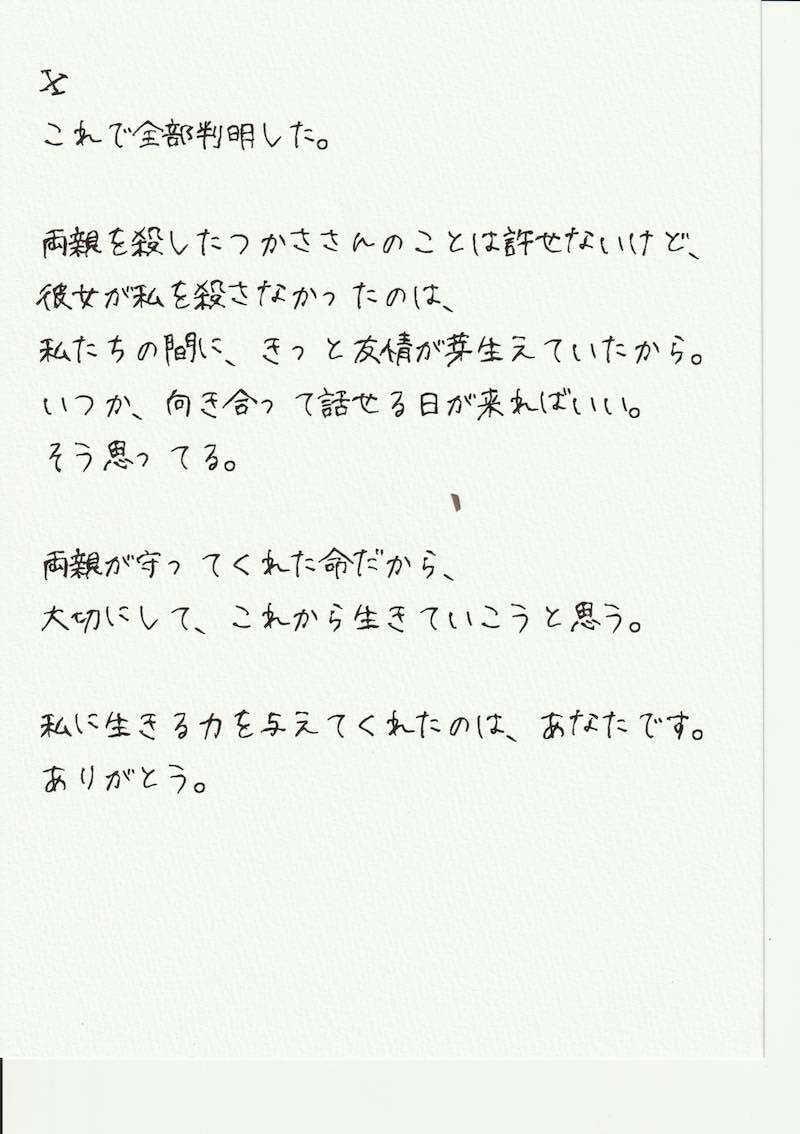 X
これで全部判明した。
両親を殺したつかささんのことは許せないけど、
彼女が私を殺さなかったのは、
私たちの間に、きっと友情が芽生えていたから。
いつか、向き合って話せる日が来ればいい。
そう思ってる。
両親が守ってくれた命だから、
大切にして、これから生きていこうと思う。
私に生きる力を与えてくれたのは、あなたです。
ありがとう。